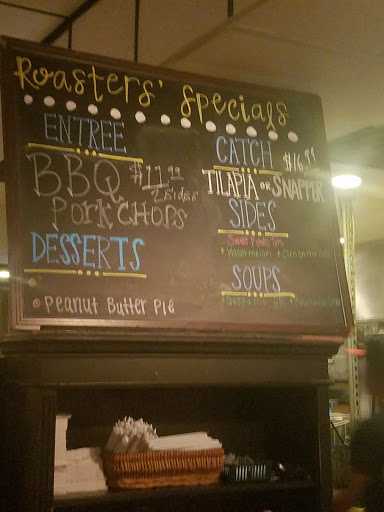 Roasters' Specials
ENTREE
BBQ $11.99
2 sides
PORK CHOPS
DESSERTS
Peanut Butter Pie
CATCH $16.99
TILAPIA OR SNAPPER
SIDES
Sweet Potato
Watermelon
SOUPS